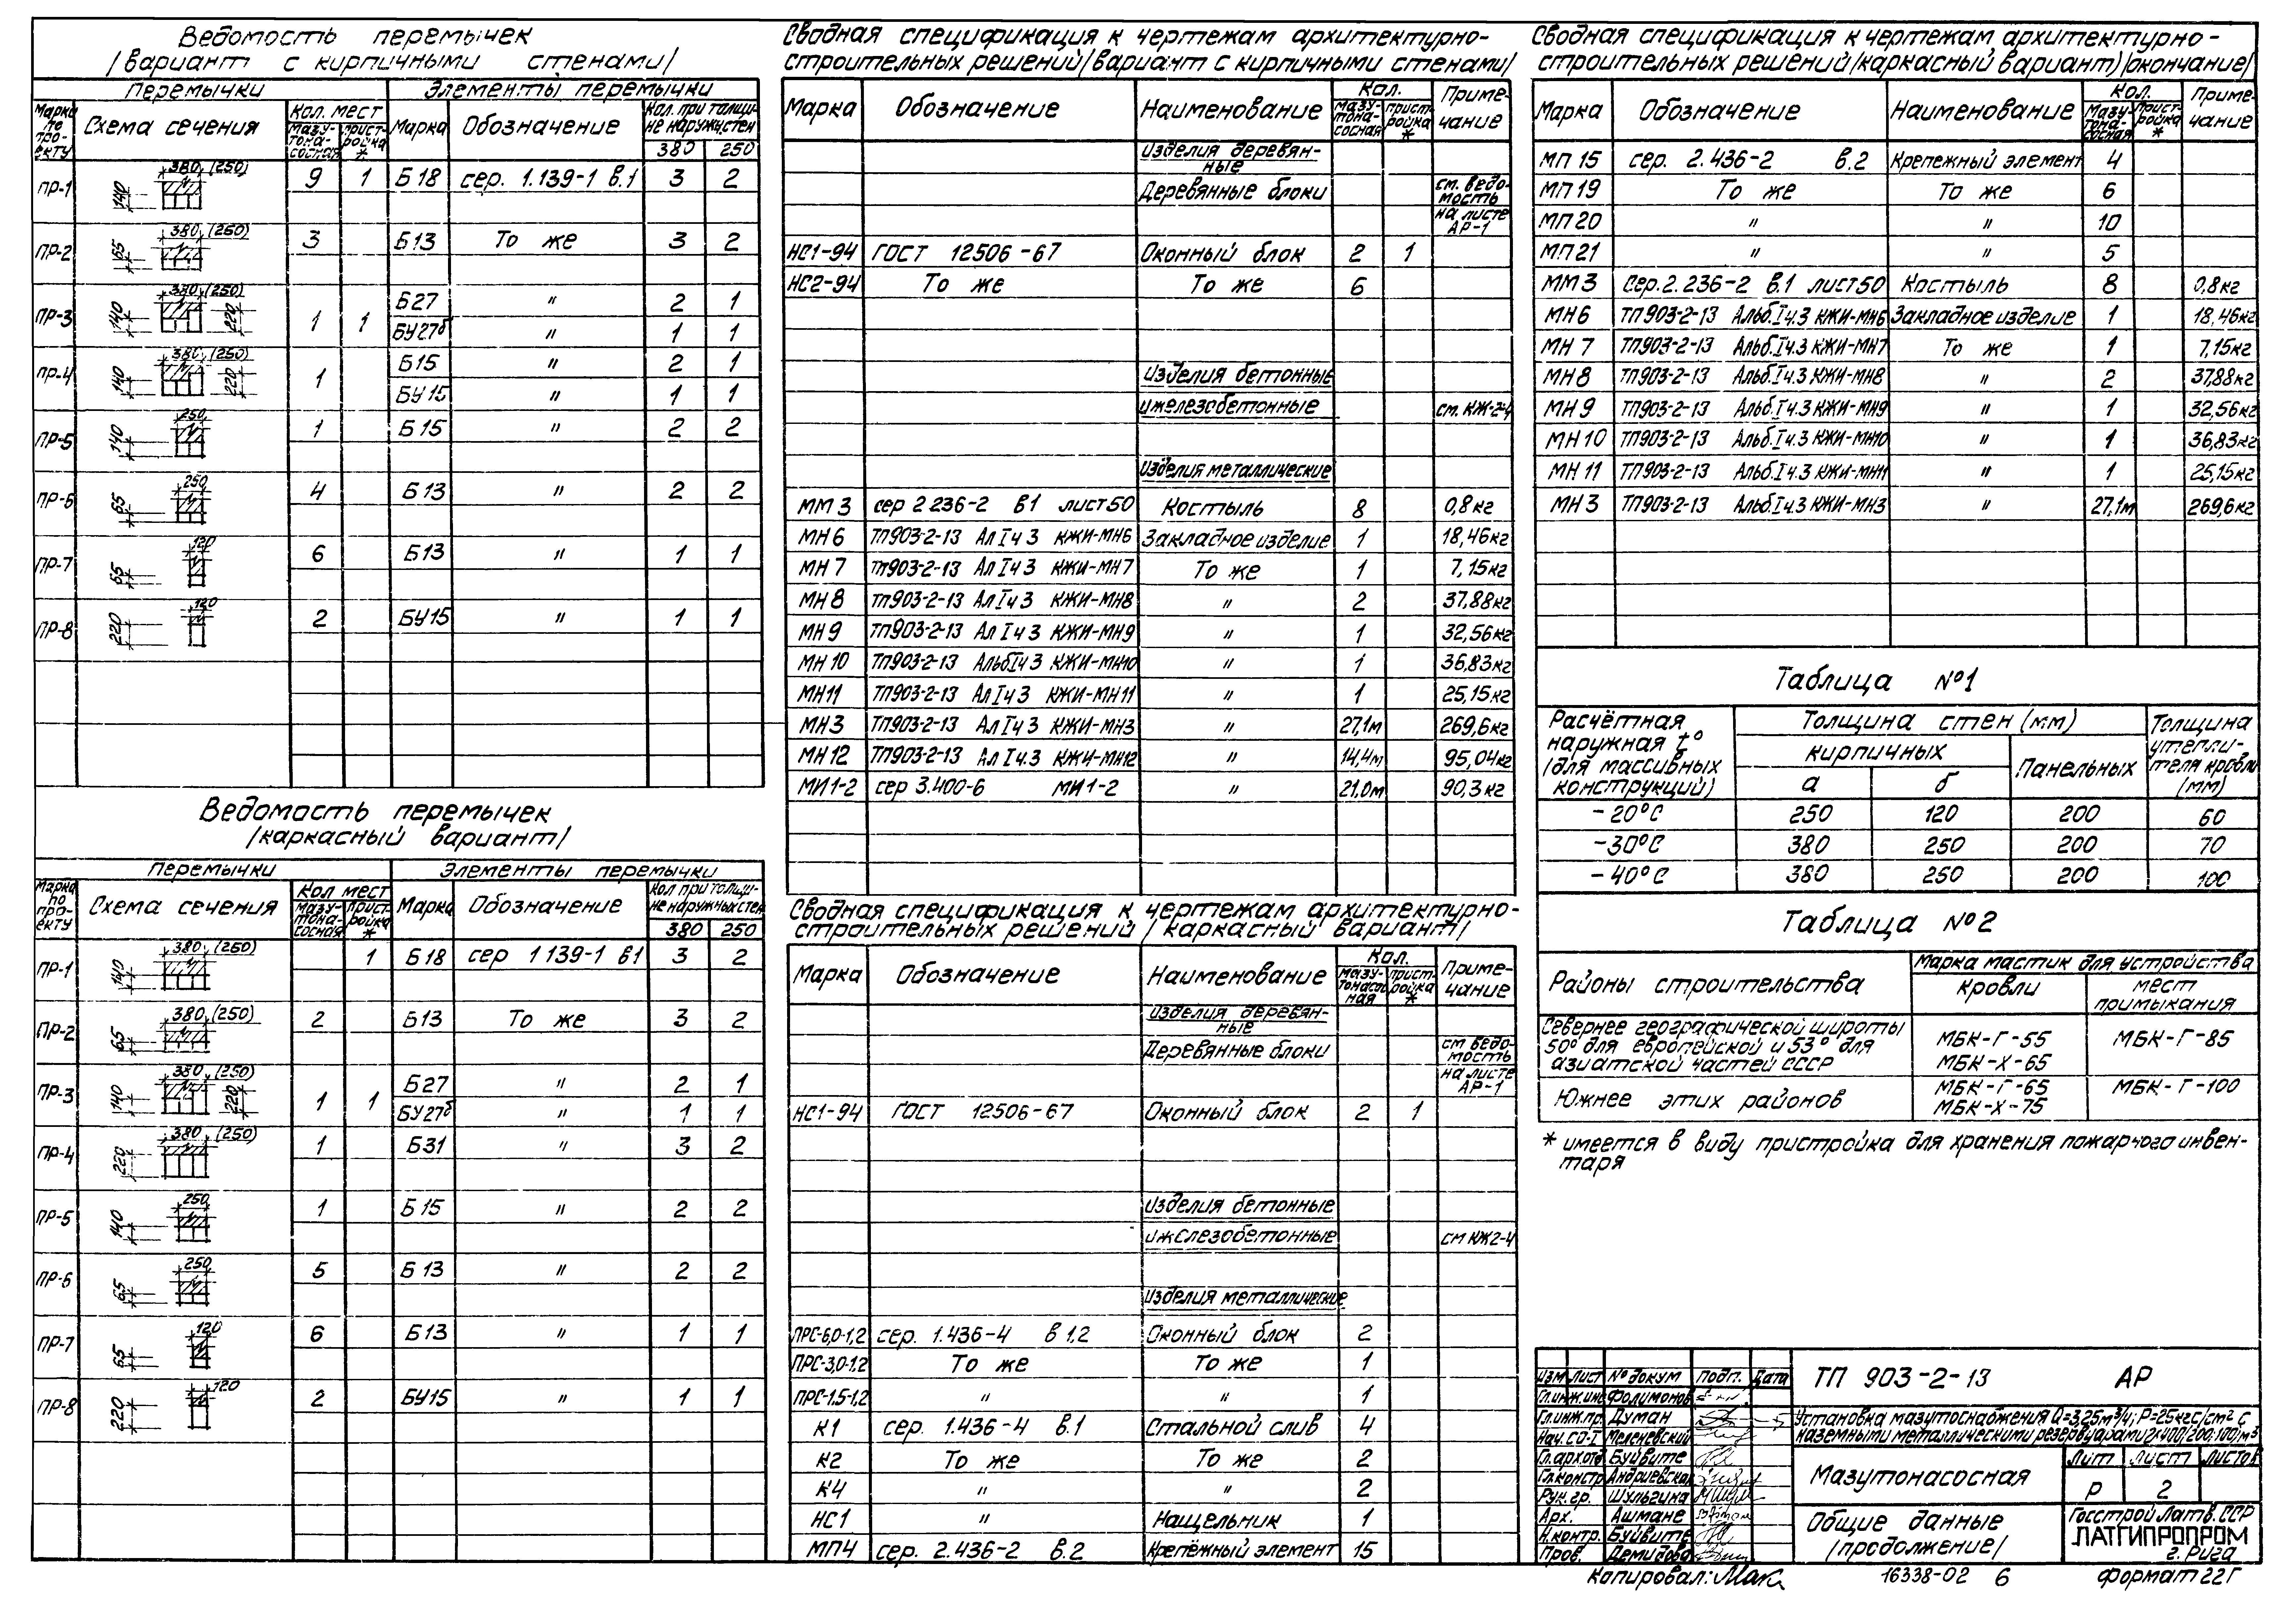 Ведомость перемычек
/вариант с кирпичными стенами/
Перемычки Элементы перемычки
Марка по проекту Схема сечения Кол. мест Марка Обозначение Кол. при толщине наружн. стен
мазутонасосная пристройка * 380 250
ПР-1 140 380 (250) 9 1 Б18 сер. 1.139-1 в.1 3 2
ПР-2 65 380 (250) 3 Б13 То же 3 2
ПР-3 140 380 (250) 220 1 1 Б27 " 2 1
БУ27б " 1 1
ПР-4 140 380 (250) 220 1 Б15 " 2 1
БУ15 " 1 1
ПР-5 140 250 1 Б15 " 2 2
ПР-6 65 250 4 Б13 " 2 2
ПР-7 65 120 6 Б13 " 1 1
ПР-8 220 120 2 БУ15 " 1 1
Ведомость перемычек
/каркасный вариант/
Перемычки Элементы перемычки
Марка по проекту Схема сечения Кол мест Марка Обозначение Кол при толщине наружн стен
мазутонасосная пристройка * 380 250
ПР-1 140 380 (250) 1 Б18 сер 1 139-1 в1 3 2
ПР-2 65 380 (250) 2 Б13 То же 3 2
ПР-3 140 380 (250) 220 1 1 Б27 " 2 1
БУ27б " 1 1
ПР-4 220 380 (250) 1 Б31 " 3 2
ПР-5 140 250 1 Б15 " 2 2
ПР-6 65 250 5 Б13 " 2 2
ПР-7 65 120 6 Б13 " 1 1
ПР-8 220 120 2 БУ15 " 1 1
Сводная спецификация к чертежам архитектурно-
строительных решений/вариант с кирпичными стенами/
Марка Обозначение Наименование Кол. Примечание
мазутонасосная пристройка *
Изделия деревян-
ные
Деревянные блоки см. ведо-
мость
на листе
АР-1
НС1-94 ГОСТ 12506-67 Оконный блок 2 1
НС2-94 То же То же 6
Изделия бетонные
и железобетонные см. КЖ-2-4
Изделия металлические
ММ 3 сер 2 236-2 в1 лист50 Костыль 8 0,8кг
МН6 ТП903-2-13 Ал I ч 3 КЖИ-МН6 Закладное изделие 1 18,46кг
МН 7 ТП903-2-13 Ал I ч 3 КЖИ-МН7 То же 1 7,15кг
МН 8 ТП903-2-13 Ал I ч 3 КЖИ-МН8 " 2 37,88кг
МН 9 ТП903-2-13 Ал I ч 3 КЖИ-МН9 " 1 32,56кг
МН 10 ТП903-2-13 Альб I ч 3 КЖИ-МН10 " 1 36,83кг
МН11 ТП903-2-13 Ал I ч 3 КЖИ-МН11 " 1 25,15кг
МН3 ТП903-2-13 Ал I ч 3 КЖИ-МН3 " 27,1м 269,6кг
МН 12 ТП903-2-13 Ал I ч.3 КЖИ-МН12 " 14,4м 95,04кг
МИ1-2 сер 3.400-6 МИ1-2 " 21,0м 90,3кг
Сводная спецификация к чертежам архитектурно-
строительных решений / каркасный вариант/
Марка Обозначение Наименование Кол. Примечание
мазутонасосная пристройка *
Изделия деревян-
ные
Деревянные блоки см ведо-
мость
на листе
АР-1
НС1-94 ГОСТ 12506-67 Оконный блок 2 1
Изделия бетонные
и железобетонные см КЖ2-4
Изделия металлические
ПРС-6,0-1,2 сер. 1.436-4 в 1.2 Оконный блок 2
ПРС-3,0-1,2 То же То же 1
ПРС-1.5-1,2 " " 1
К1 сер. 1.436-4 в.1 Стальной слив 4
К2 То же То же 2
К4 " " 2
НС1 " Нащельник 1
МП4 сер. 2.436-2 в.2 Крепёжный элемент 15
Сводная спецификация к чертежам архитектурно-
строительных решений/каркасный вариант)/окончание/
Марка Обозначение Наименование Кол. Примечание
Мазутонасосная пристройка *
МП 15 сер. 2.436-2 в.2 Крепежный элемент 4
МП 19 То же То же 6
МП 20 " " 10
МП21 " " 5
ММ 3 Сер. 2.236-2 в.1 лист50 Костыль 8 0,8кг
МН6 ТП903-2-13 Альб. I ч.3 КЖИ-МН6 Закладное изделие 1 18,46кг
МН 7 ТП903-2-13 Альб. I ч.3 КЖИ-МН7 То же 1 7,15кг
МН 8 ТП903-2-13 Альб. I ч.3 КЖИ-МН8 " 2 37,88кг
МН 9 ТП903-2-13 Альб. I ч.3 КЖИ-МН9 " 1 32,56кг
МН 10 ТП903-2-13 Альб. I ч.3 КЖИ-МН10 " 1 36,83кг
МН 11 ТП903-2-13 Альб. I ч.3 КЖИ-МН11 " 1 25,15кг
МН 3 ТП903-2-13 Альб. I ч.3 КЖИ-МН3 " 27,1м 269,6кг
Таблица №1
Расчётная наружная t° (для массивных конструкций) Толщина стен (мм) Толщина утеплителя кровли (мм)
кирпичных Панельных
а б
-20°С 250 120 200 60
-30°С 380 250 200 70
-40°С 380 250 200 100
Таблица №2
Районы строительства Марка мастик для устройства
кровли мест примыкания
Севернее географической широты
50° для европейской и 53° для
азиатской частей СССР
МБК-Г-55 МБК-Г-85
МБК-Х-65
Южнее этих районов МБК-Г-65 МБК-Г-100
МБК-Х-75
* имеется в виду пристройка для хранения пожарного инвен-
таря
Изм Лист № докум Подп. Дата
Гл.инж.инс Филимонов
Гл.инж.пр. Думан
Нач. СО-I Меленевский
Гл.арх.отд Буйвите
Гл.констр Андриевская
Рук. гр. Шульгина
Арх. Ашмане
Н.контр. Буйвите
Пров. Демидова
ТП 903-2-13 АР
Установка мазутоснабжения Q=3,25м³/ч; Р=25кгс/см² с
наземными металлическими резервуарами 2×400/200;100/м³
Мазутонасосная
Лит Лист Листов
Р 2
Общие данные
/продолжение/
Госстрой Латв. ССР
ЛАТГИПРОПРОМ
г. Рига
Копировал: 16338-02 6 Формат 22Г